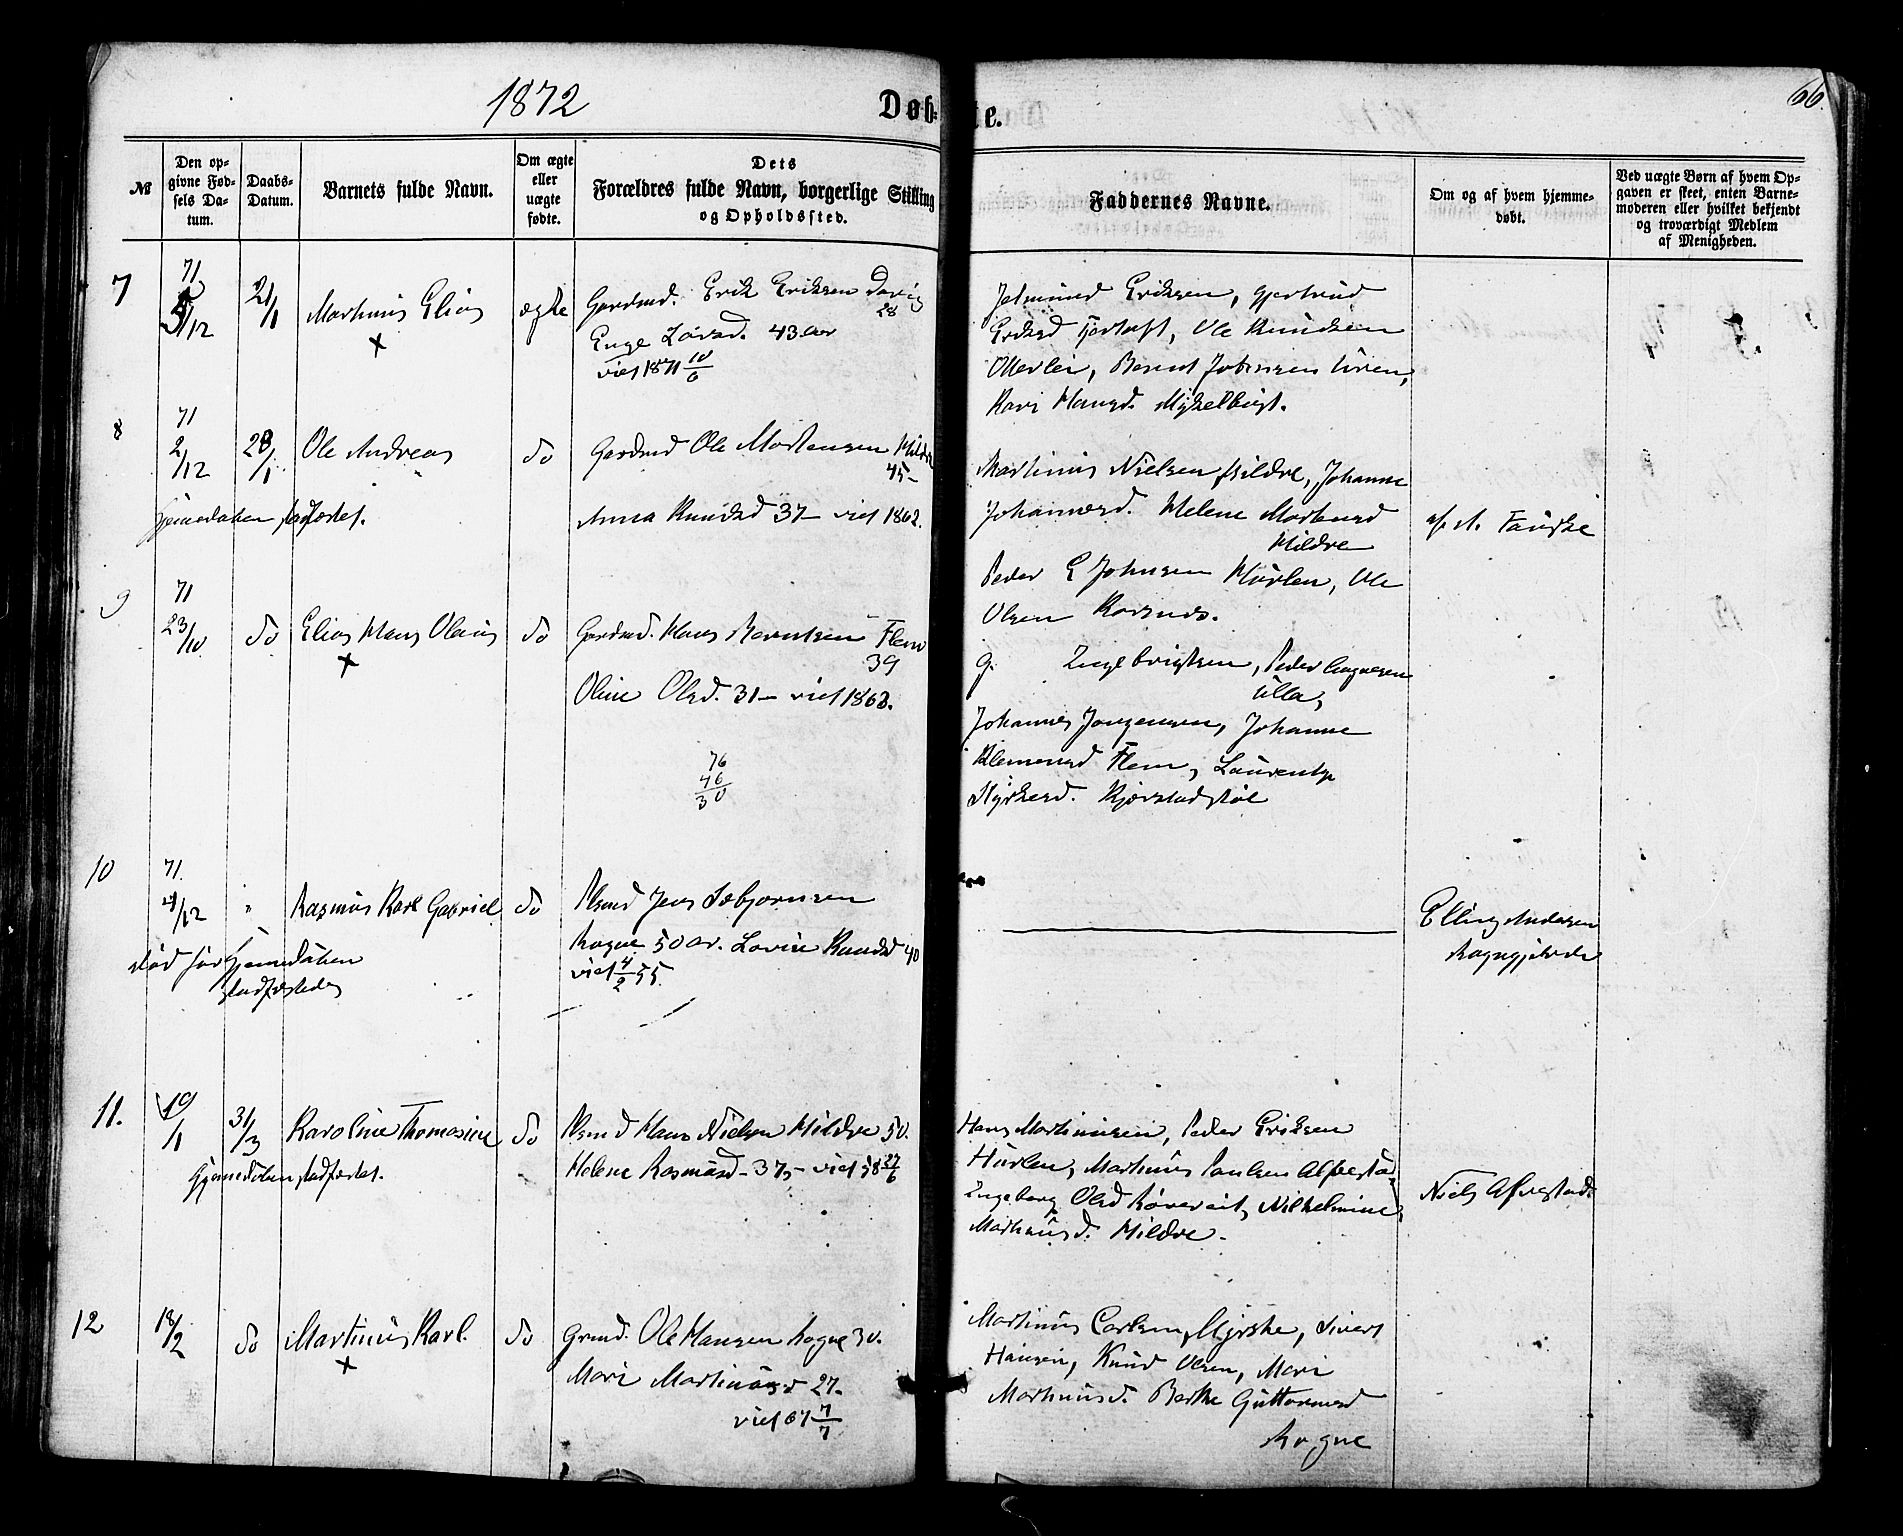 1872
Døb-
te.
66.
№
Den op-
givne Fød-
sels Da-
tum.
Daabs-
Datum.
Barnets fulde Navn.
Om ægte
eller
uægte
fødte.
Dets
Forældres fulde Navn, borgerlige Stilling
og Opholdssted.
Faddernes Navne.
Om og af hvem hjemme-
døbt.
Ved uægte Børn af hvem Op-
gaven er skeet, enten Barne-
moderen eller hvilket bekjendt
og troværdigt Medlem
af Menigheden.
7
71
5/12
21/1
Martinus Elias
ægte
Gardmd. Erik Eriksen
28
Enge Larsd. 43 aar
viet 1871 10/6
Eriksen, Gjertrud
Eriksd Ole Knudsen
Otterlei, Bernt Johnsen Uren,
Kari Hansd. Mykelbust.
8
71
2/12
28/1
Ole Andreas
do
Gardmd Ole Mortensen Hildre
45-
Anna Knudsd 37- viet 1862.
Hjemedaaben stadfæstet.
Martinus Nielsen Hildre, Johanne
Johannesd. Helene Martinusd
Hildre
Peder E Johnsen Hurlen, Ole
Olsen Ravnes.
af A. Fauske
9
71
23/10
do
Elias Hans Olaus
do
Gardmd. Hans Berntsen Flem
39
Oline Olsd. 31- viet 1863.
76
46
30
G. Engebrigtsen, Peder Aagesen
Ulla,
Johannes Jørgensen, Johanne
Klemensd Flem,
Styrkesd. Kjerstadstøl
10
71.
4/12
"
Rasmus Karl Gabriel
do
Jens Sebjørnsen
Rogne 50 ar. Lovise Knudsd 40
viet 4/2 55.
død før Hjemedaaben
stadfæstedes
Elling Andersen
11.
19/1
31/3
Karoline Thomasine
do
Hans Nielsen Hildre 50.
Helene Rasmusd- 37- viet 58 27/6
Hjemedaaben stadfæstet.
Hans Martinusen, Peder Eriksen
Hurlen, Martinus Paulsen Alfvestad
Ingeborg Olsd Røvereit, Vilhelmine
Martinusd. Hildre.
Niels Alfvestad
12
18/2
do
Martinus Karl.
do
Grmd. Ole Hansen Rogne 30.
Mari Martinusd 27.
viet 67 7/7
Martinus Carlsen Myrske, Sivert
Hansen, Knud Olsen, Mari
Martinusd. Berthe Guttormsd
Rogne